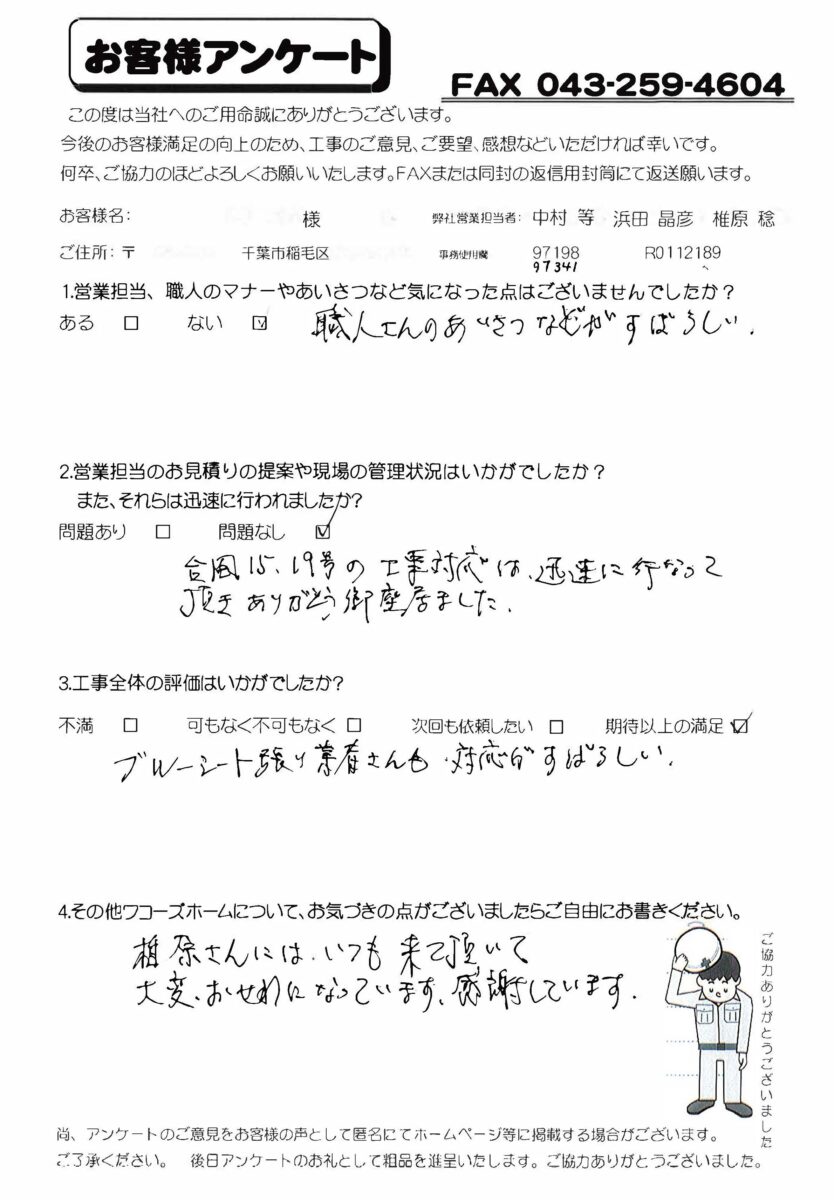 お客様アンケート
FAX 043-259-4604
この度は当社へのご用命誠にありがとうございます。
今後のお客様満足の向上のため、工事のご意見、ご要望、感想などいただければ幸いです。
何卒、ご協力のほどよろしくお願いいたします。FAXまたは同封の返信用封筒にて返送願います。
お客様名: 様 弊社営業担当者: 中村 等 浜田 晶彦 椎原 稔
ご住所:〒 千葉市稲毛区 事務使用欄 97198 R0112189
97341
1.営業担当、職人のマナーやあいさつなど気になった点はございませんでしたか?
ある □ ない ☑ 職人さんのあいさつなどがすばらしい.
2.営業担当のお見積りの提案や現場の管理状況はいかがでしたか?
また、それらは迅速に行われましたか?
問題あり □ 問題なし ☑
台風15、19号の工事対応は、迅速に行なって
頂きありがとう御座居ました.
3.工事全体の評価はいかがでしたか?
不満 □ 可もなく不可もなく □ 次回も依頼したい □ 期待以上の満足 ☑
ブルーシート張り業者さんも対応がすばらしい.
4.その他ワコーズホームについて、お気づきの点がございましたらご自由にお書きください。
椎原さんには、いつも来て頂いて
大変、おせわになっています、感謝しています.
ご協力ありがとうございました
尚、アンケートのご意見をお客様の声として匿名にてホームページ等に掲載する場合がございます。
ご了承ください。 後日アンケートのお礼として粗品を進呈いたします。ご協力ありがとうございました。